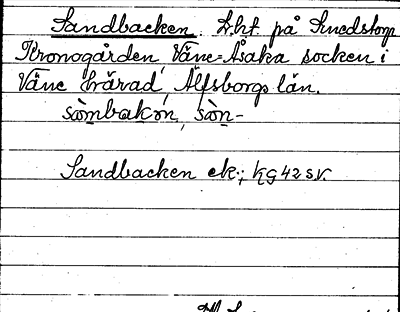 Sandbacken. Lht. på Smedstorp
Kronogården, Väne-Åsaka socken i
Väne härad, Älfsborgs län.
sòmbakən, sòn-
Sandbacken ek.; kg 42 s.v.